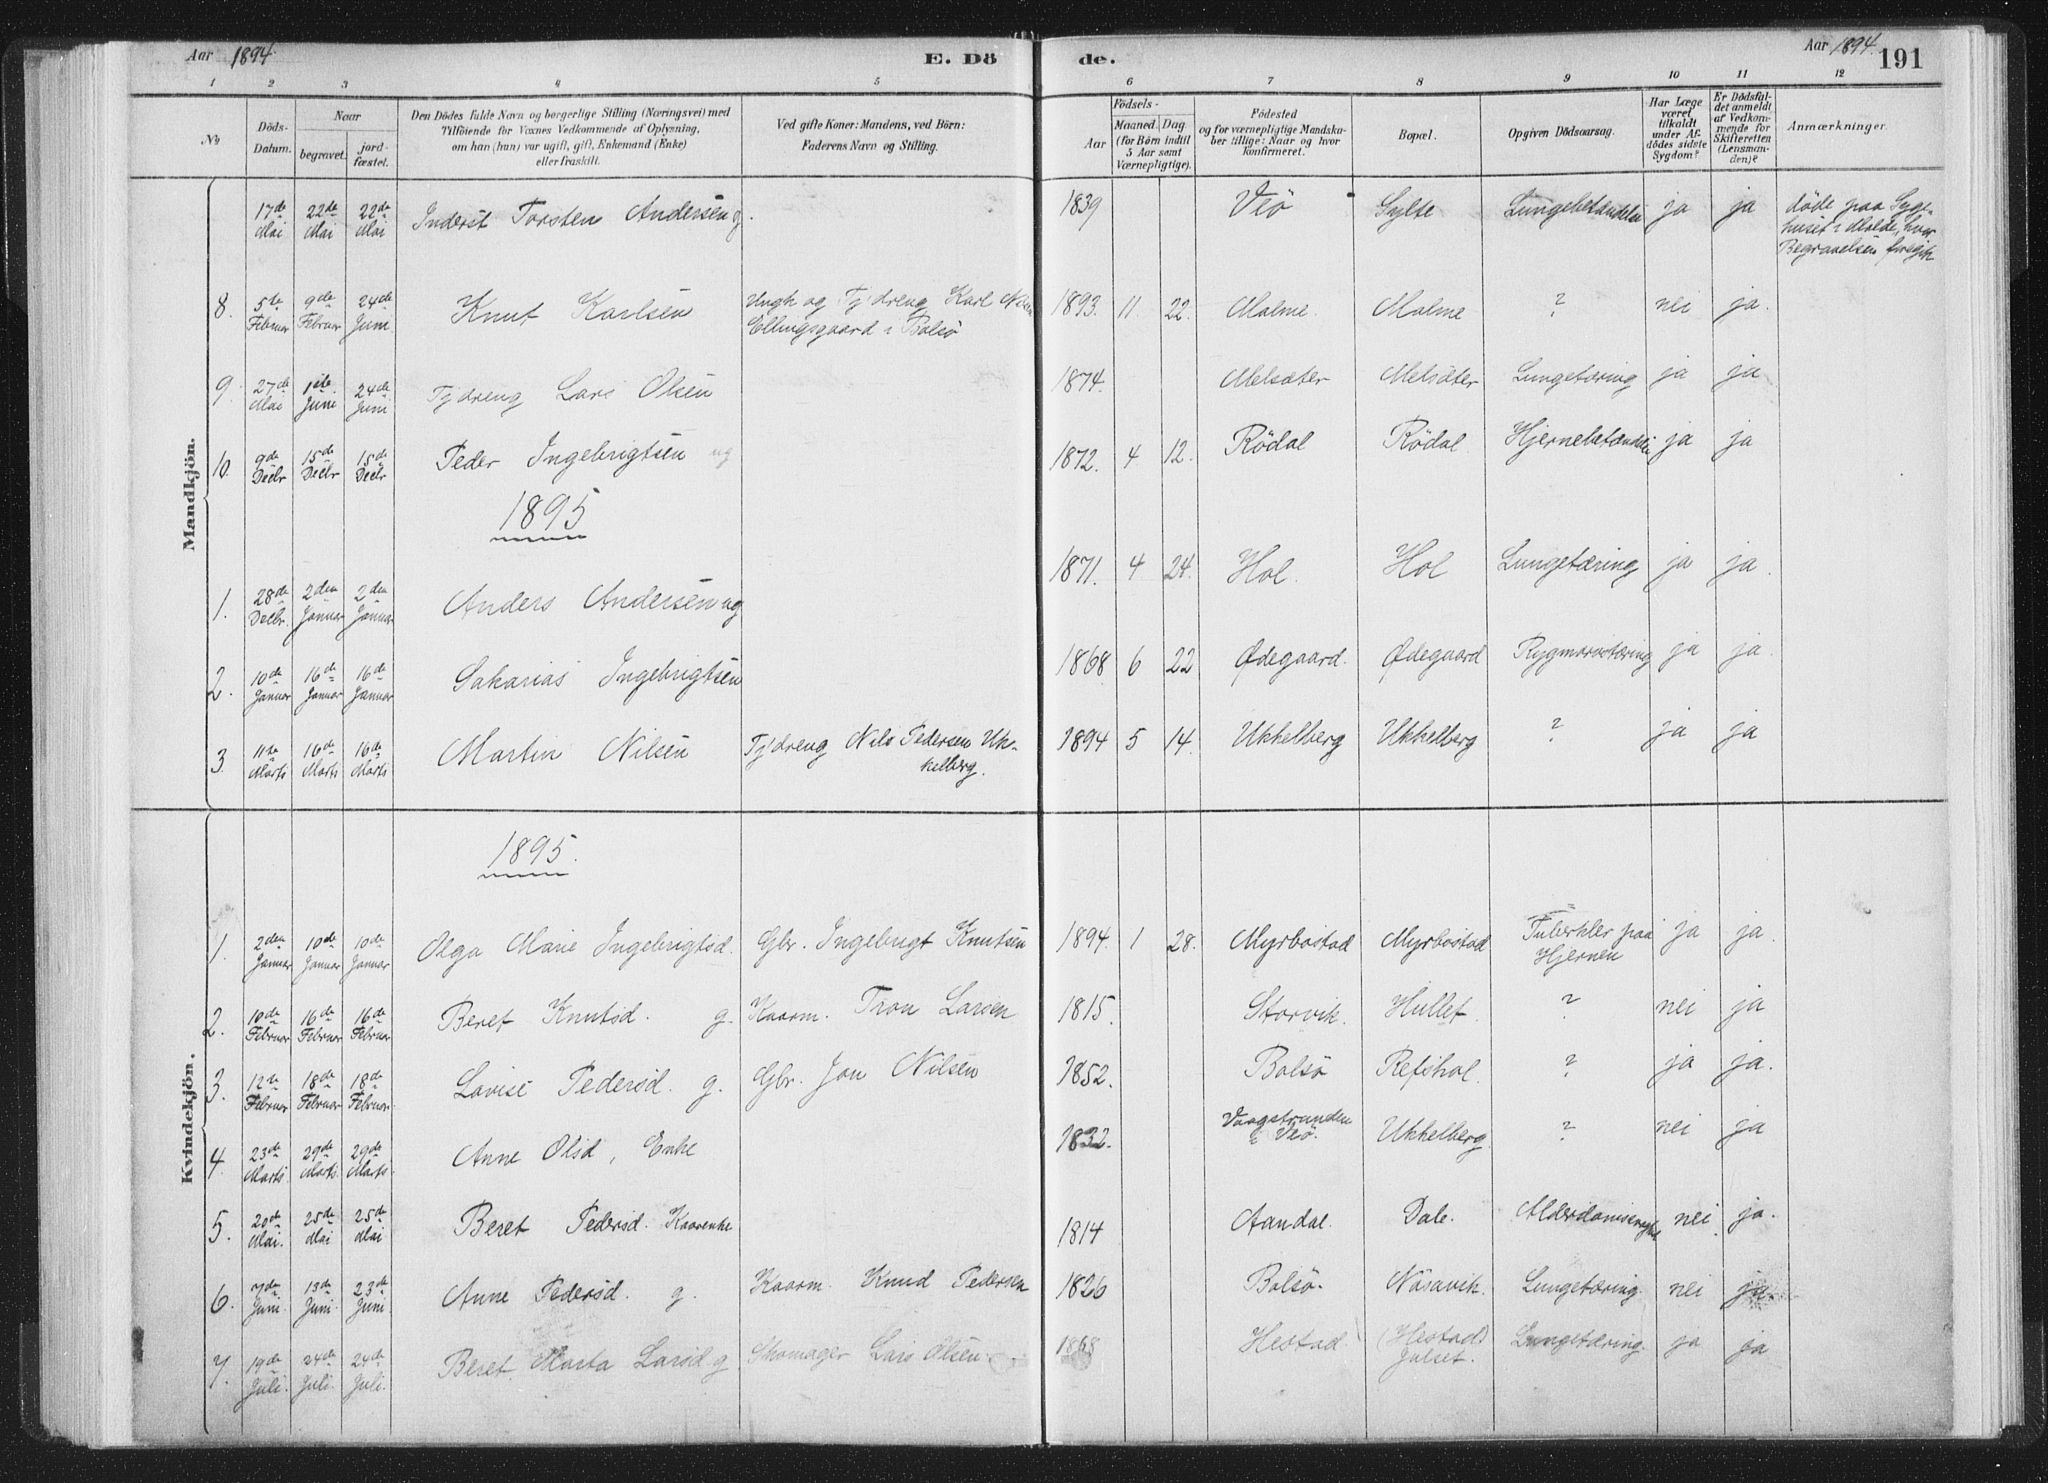 Aar 1894.
E. Dö
de.
Aar 1894.
191
1 2 3 4 5 6 7 8 9 10 11 12
No
Döds-
Datum.
Naar
begravet.
jord-
fæstet.
Den Dödes fulde Navn og borgerlige Stilling (Næringsvei) med
Tilföiende for Voxnes Vedkommende af Oplysning,
om han (hun) var ugift, gift, Enkemand (Enke)
eller fraskilt.
Ved gifte Koner: Mandens, ved Börn:
Faderens Navn og Stilling.
Födsels-
Aar
Maaned. Dag
(for Börn indtil
5 Aar samt
Værnepligtige).
Födested
og for værnepligtige Mandska-
ber tillige: Naar og hvor
konfirmeret.
Bopæl.
Opgiven Dödsaarsag.
Har Læge
været
tilkaldt
under Af-
dödes sidste
Sygdom?
Er Dödsfal-
det anmeldt
af Vedkom-
mende for
Skifteretten
(Lensman-
den)?
Anmærkninger.
Mandkjön.
17de Mai 22de Mai 22de Mai Inderst Torsten Andersen g. 1839 Veö Sylte Lungebetændelse ja ja döde paa Syge-
huset i Molde, hvor
Begravelsen foregik
8. 5te Februar 9de Februar 24de Juni Knut Karlsen Ungk og Tj dreng Karl Nilsen
Ellingsgaard i Bolsö 1893. 11. 22. Malme. Malme ? nei ja.
9. 27de Mai 1ste Juni 24de Juni Tjdreng Lars Olsen 1874. Melsæter Melsæter Lungetæring ja ja
10. 9de Decbr 15de Decbr 15de Decbr Peder Ingebrigtsen ug 1872. 4 12. Rödal Rödal Hjernebetændelse ja ja
1895
1. 28de Decbr. 2den Januar 2den Januar Anders Andersen ug 1871. 4 24. Hol. Hol Lungetæring ja ja.
2. 10de Januar 16de Januar 16de Januar Sakarias Ingebrigtsen 1868 6 22 Ødegaard. Ødegaard Rygmarvstæring ja ja.
3. 11te Marts 16de Marts 16de Marts Martin Nilsen Tjdreng Nils Pedersen Uk-
kelberg. 1894 5 14. Ukkelberg Ukkelberg ? ja ja
Kvindekjön.
1895.
1. 2den Januar 10de Januar 10de Januar Olga Marie Ingebrigtsd. Gbr. Ingebrigt Knutsen 1894. 1 28. Myrbostad Myrbostad Tuberkler paa
Hjernen ja ja.
2. 10de Februar 16de Februar 16de Februar Beret Knutsd. g. Kaarm. Tron Larsen 1815. Storvik. Hullet. ? nei ja
3. 12te Februar 18de Februar 18de Februar Lovise Pedersd. g. Gbr. Jon Nilsen 1852. Bolsö Refshol. ? ja ja.
4. 23de Marts 29de Marts. 29de Marts. Anne Olsd, Enke 1832. Vaagstranden
i Veö. Ukkelberg. ? nei ja
5. 20de Mai. 25de Mai 25de Mai Beret Pedersd. Kaarenke 1814 Aandal. Dale. nei ja.
6. 7de Juni. 13de Juni. 23de Juni Anne Pedersd. g. Kaarm. Knud Pedersen 1826 Bolsö. Nösavik. Lungetæring. nei ja.
7. 19de Juli. 24de Juli. 24de Juli. Beret Marta Larsd g Skomager Lars Olsen. 1868 Hestad. (Hestad)
Julset. Lungetæring. ja ja